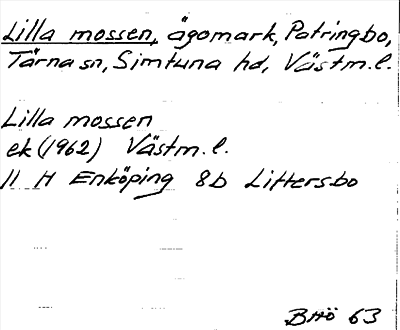 Lilla mossen, ägomark, Patringbo,
Tärna sn, Simtuna hd, Västm.l.
Lilla mossen
ek (1962) Västm.l.
11 H Enköping 8b Littersbo
BHö 63